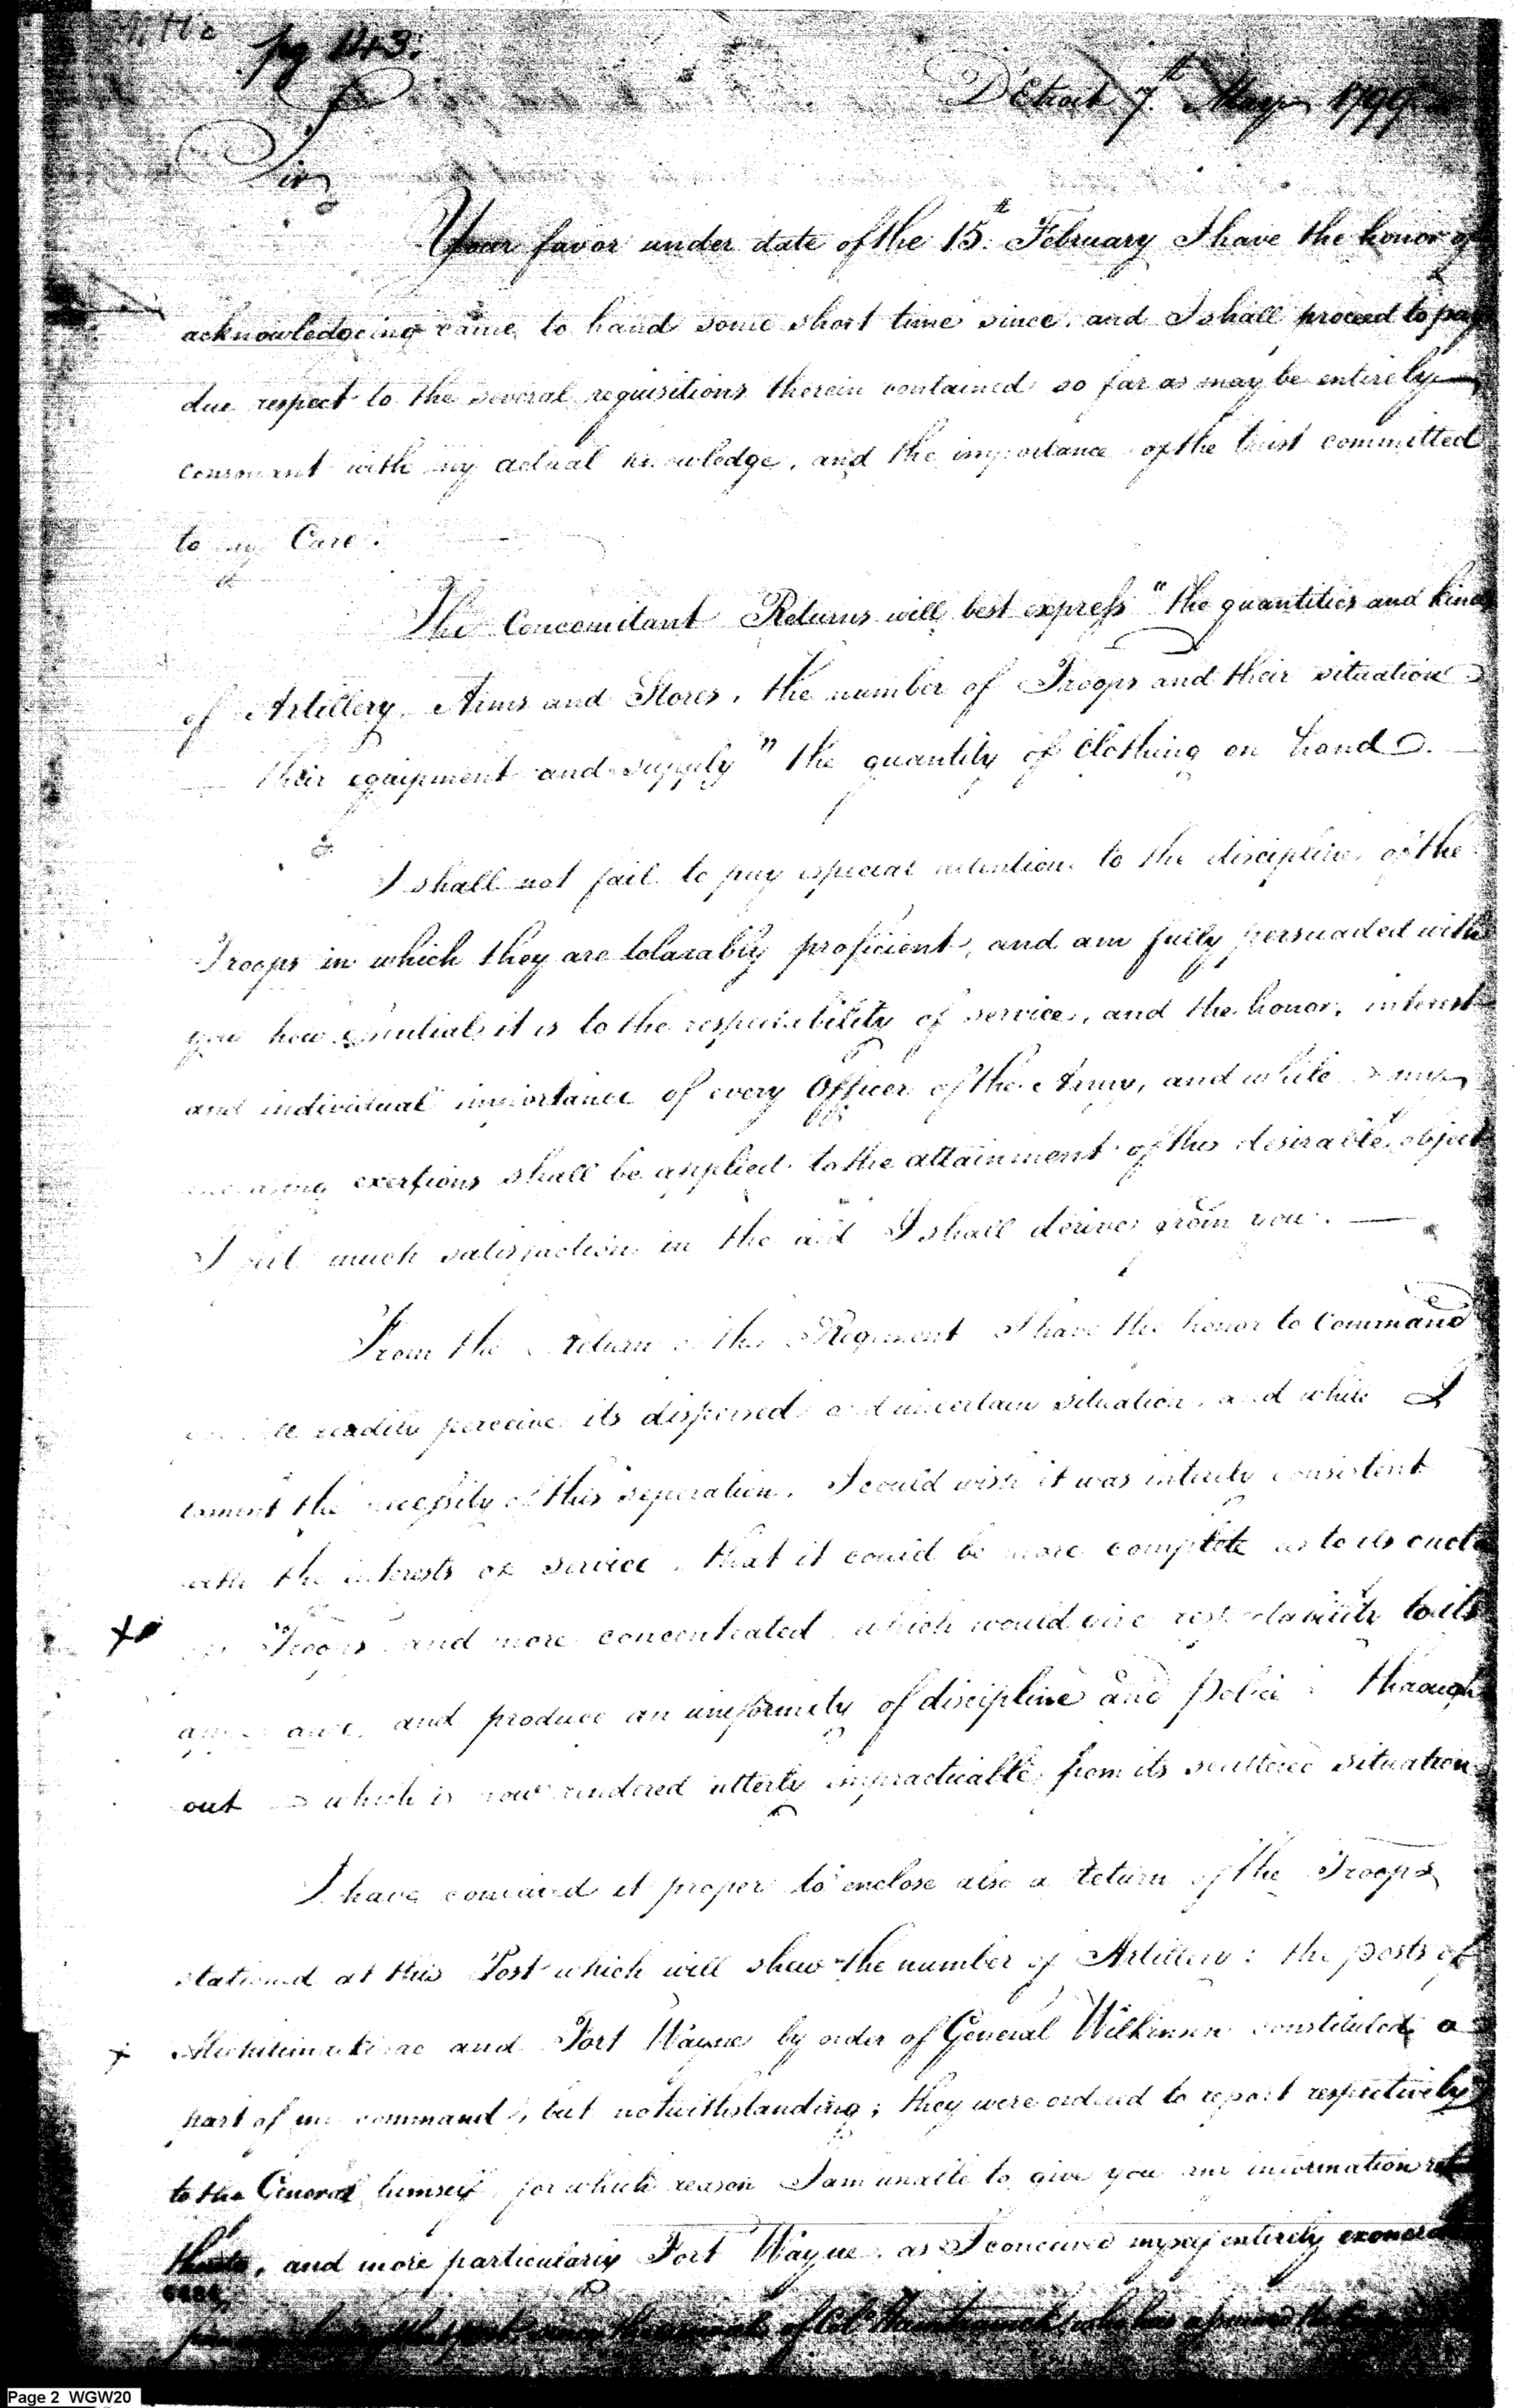 pg 143.
D'Etroit 7th May 1799
Sir
Your favor under date of the 15th February I have the honor of
acknowledgeing came to hand some short time since, and I shall proceed to pay
due respect to the several requisitions therein contained so far as may be entirely
consonant with my actual knowledge, and the importance of the trust committed
to my Care.
The Concomitant Returns will best express "the quantities and kinds
of Artillery, Arms and Stores, the number of Troops and their situation
their equipment and supply" the quantity of Clothing on hand.
I shall not fail to pay especial attention to the discipline of the
Troops in which they are tolarably proficient, and am fully persuaded with
you how essential it is to the respectability of service, and the honor, interest
and individual importance of every Officer of the Army, and while my
exertions shall be applied to the attainment of this desirable object
I feel much satisfaction in the aid I shall derive from you.
From the return of the Regiment I have the honor to Command
readily perceive its dispersed and uncertain situation, and while I
lament the necessity of this seperation, I could wish it was intirely consistent
with the interests of service, that it could be more complete as to its
Troops and more concentrated, which would give respectability to its
and produce an uniformity of discipline and police through
out which is now rendered utterly impracticable from its scattered situation
I have conceived it proper to enclose also a return of the Troops
stationed at this Post which will shew the number of Artillery: the posts of
and Fort Wayne by order of General Wilkinson constituted a
part of my command, but notwithstanding; they were ordered to report respectively
to the General himself for which reason I am unable to give you any information
and more particularly Fort Wayne, as I conceived myself entirely
of Col. Hamtramck, who has assumed the
Page 2 WGW20